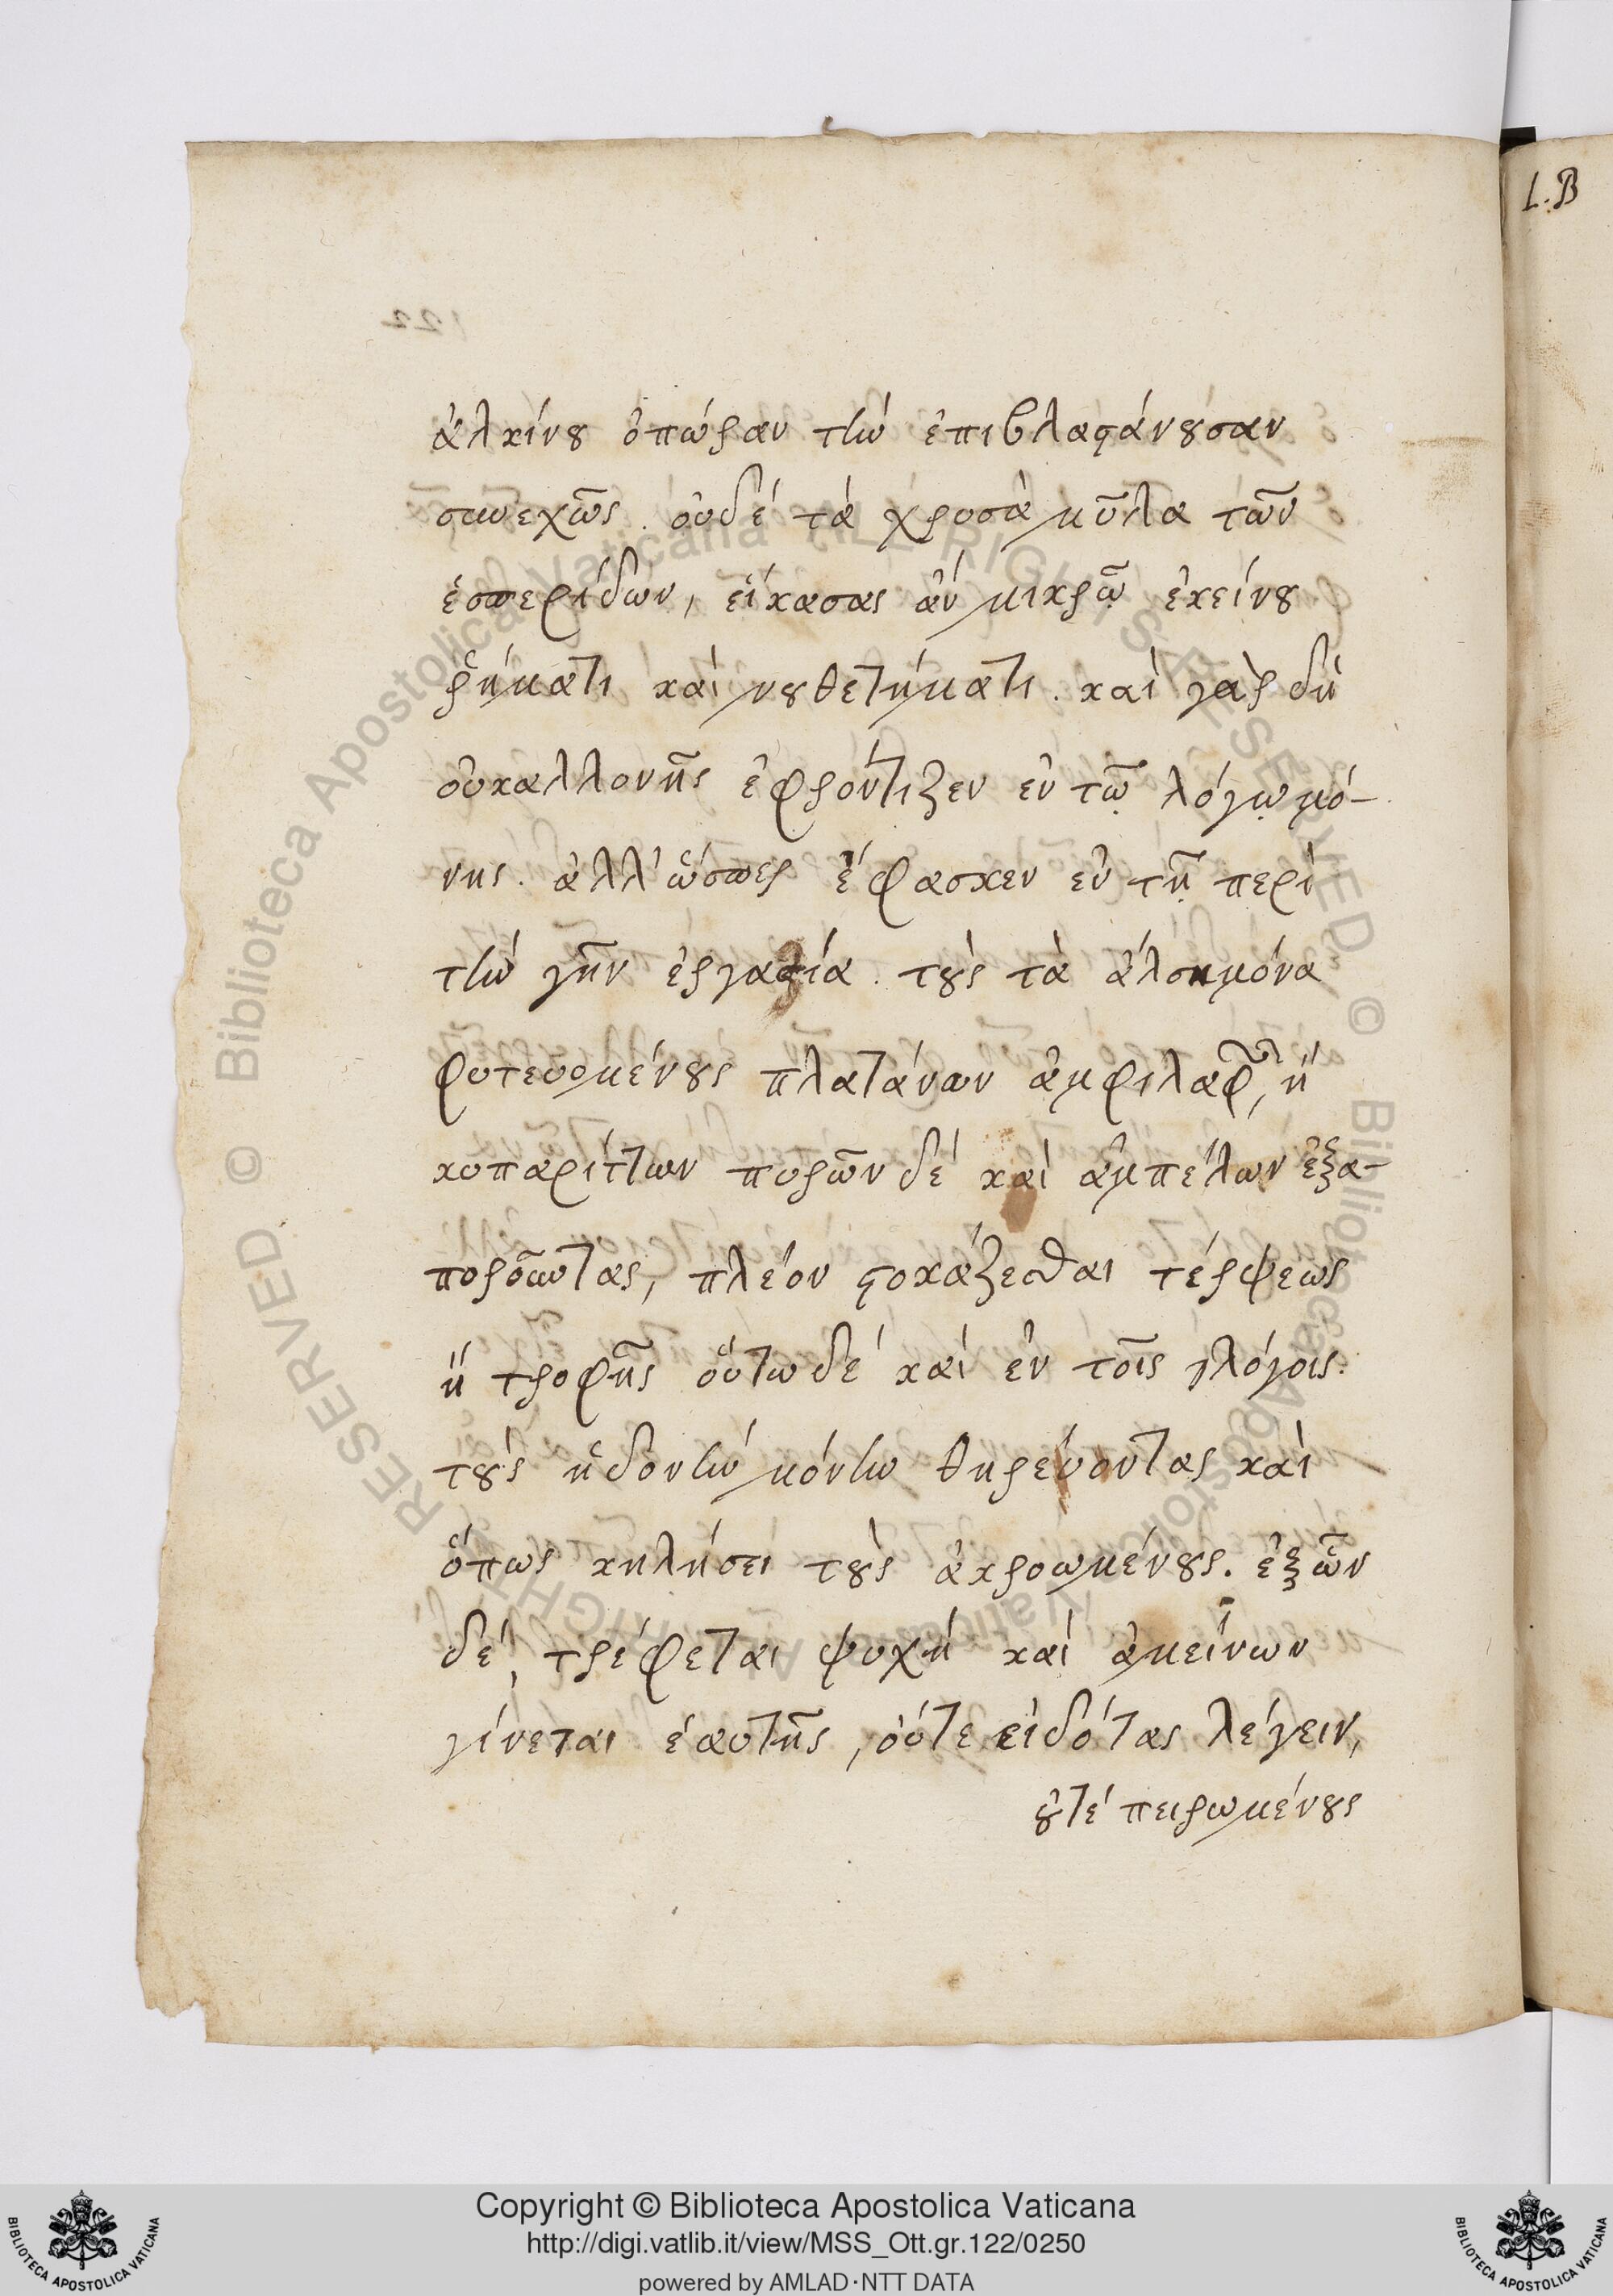 L.B
122
ἀλκίνου ὀπώραν τὴν ἐπιβλαστάνουσαν
συνεχῶς. οὐδὲ τὰ χρυσὰ μῦλα τῶν
ἑσπερίδων, εἴκασας ἂν μικρῷ ἐκείνου
ῥήματι καὶ νουθετήματι. καὶ γὰρ δὴ
οὐκαλλονῆς ἐφρόντιζεν ἐν τῷ λόγῳ μό-
νης. ἀλλ' ὥσπερ ἔφασκεν ἐν τῇ περὶ
τὴν γῆν ἐργασία. τοὺς τὰ ἄλση μόνα
φυτευομένους πλατάνων ἀμφιλαφῶν, ἢ
κυπαρίττων πυρῶν δὲ καὶ ἀμπέλων ἐξα-
ποροῦντας, πλέον στοχάζεσθαι τέρψεως
ἢ τροφῆς οὕτω δὲ καὶ ἐν τοῖς λόγοις.
τοὺς ἡδονὴν μόνην θηρεύοντας καὶ
ὅπως κηλήσει τοὺς ἀκροωμένους. ἐξὧν
δὲ, τρέφεται ψυχὴ καὶ ἀμείνων
γίνεται ἑαυτῆς, οὔτε εἰδότας λέγειν,
οὔτε πειρωμένους
Copyright © Biblioteca Apostolica Vaticana
http://digi.vatlib.it/view/MSS_Ott.gr.122/0250
powered by AMLAD·NTT DATA
BIBLIOTECA APOSTOLICA VATICANA
BIBLIOTECA APOSTOLICA VATICANA
© Biblioteca Apostolica Vaticana ALL RIGHTS RESERVED © Biblioteca Apostolica Vaticana ALL RIGHTS RESERVED